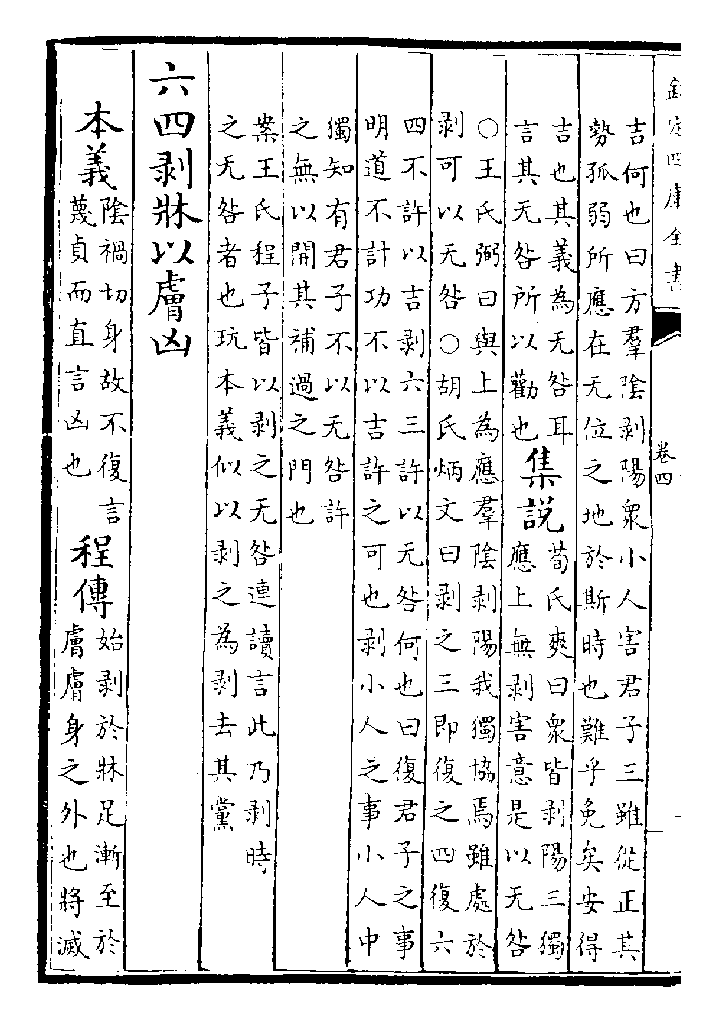 欽定四庫全書
卷四
吉何也曰方羣陰剥陽衆小人害君子三雖從正其
勢孤弱所應在无位之地於斯時也難乎免矣安得
吉也其義為无咎耳
言其无咎所以勸也
集說
荀氏爽曰衆皆剥陽三獨
應上無剥害意是以无咎
○王氏弼曰與上為應羣陰剥陽我獨協焉雖處於
剥可以无咎○胡氏炳文曰剥之三即復之四復六
四不許以吉剥六三許以无咎何也曰復君子之事
明道不計功不以吉許之可也剥小人之事小人中
獨知有君子不以无咎許
之無以開其補過之門也
案王氏程子皆以剥之无咎連讀言此乃剥時
之无咎者也玩本義似以剥之為剥去其黨
六四剥牀以膚凶
本義
陰禍切身故不復言
蔑貞而直言凶也
程傳
始剥於牀足漸至於
膚膚身之外也將滅